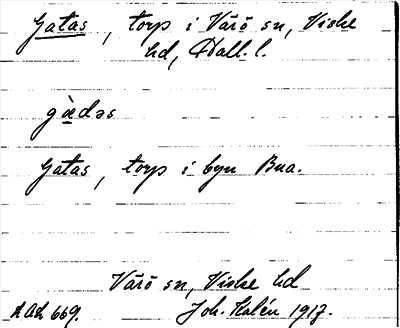 Gatas, torp i Värö sn, Viske
hd, Hall. l.
gàdəs
Gatas, torp i byn Bua.
Värö sn, Viske hd
Joh. Kalén 1917.